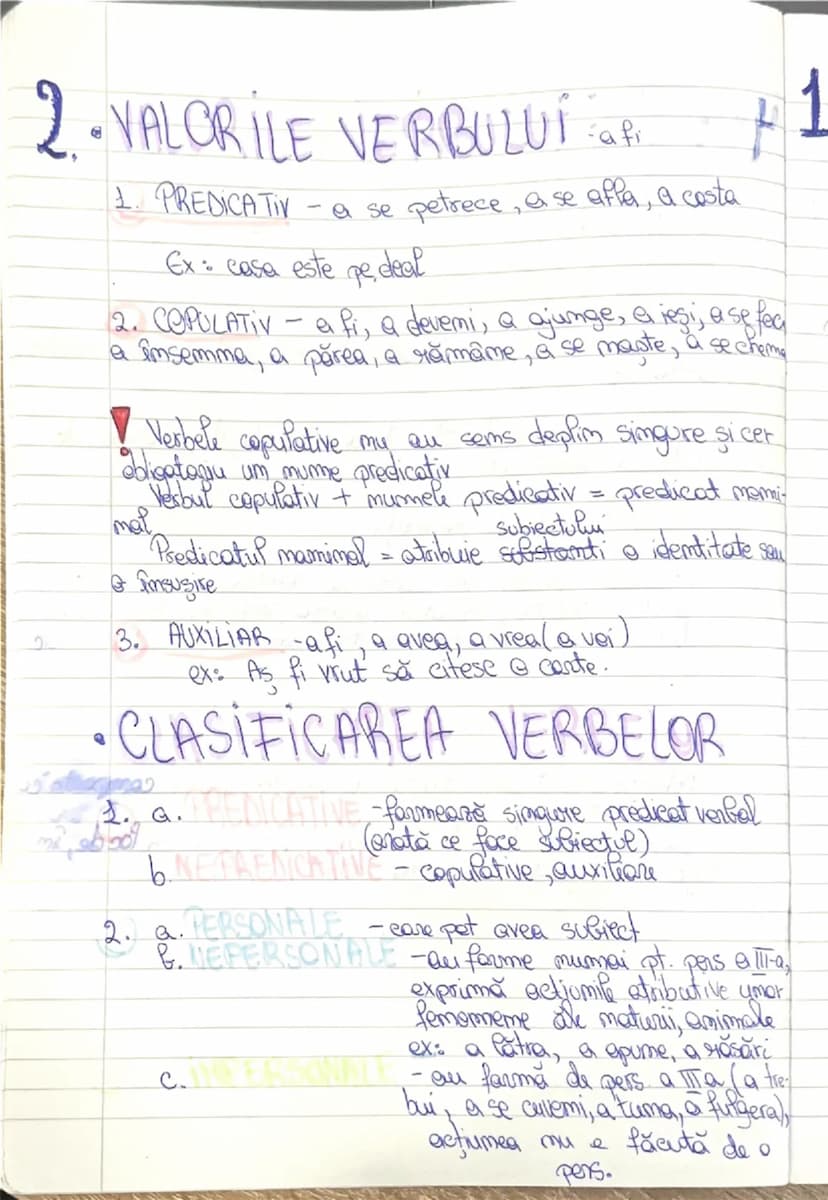 2. • VALORILE VERBULUI - a fi
1
1. PREDICATIV - a se petrece, a se afla, a costa
Ex: casa este pe deal
2. COPULATIV - a fi, a deveni, a ajunge, a ieși, a se fac
a însemna, a părea, a rămâne, a se naște, a se chema
! Verbele copulative nu au sens deplin singure și cer
obligatoriu un nume predicativ
Verbul copulativ + numele predicativ = predicat nomi-
nal
subiectului
Predicatul naminal = atribuie substanti o identitate sau
o însușire
3. AUXILIAR - a fi, a avea, a vrea (a voi)
ex: Aș fi vrut să citesc o carte.
• CLASIFICAREA VERBELOR
1. a. PREDICATIVE - formează singure predicat verbal
(arată ce face subiectul)
b. NEPREDICATIVE - copulative, auxiliare
2. a. PERSONALE - care pot avea subiect
b. UNEPERSONALE - au forme numai pt. pers a III-a,
exprimă acțiunile atributive unor
fenomneme ale naturii, animale
ex: a lătra, a apune, a răsări
c. IMPERSONALE - au formă de pers a III a (a tre-
bui, a se cuveni, a tuna, a fulgera),
acțiunea nu e făcută de o
pers.